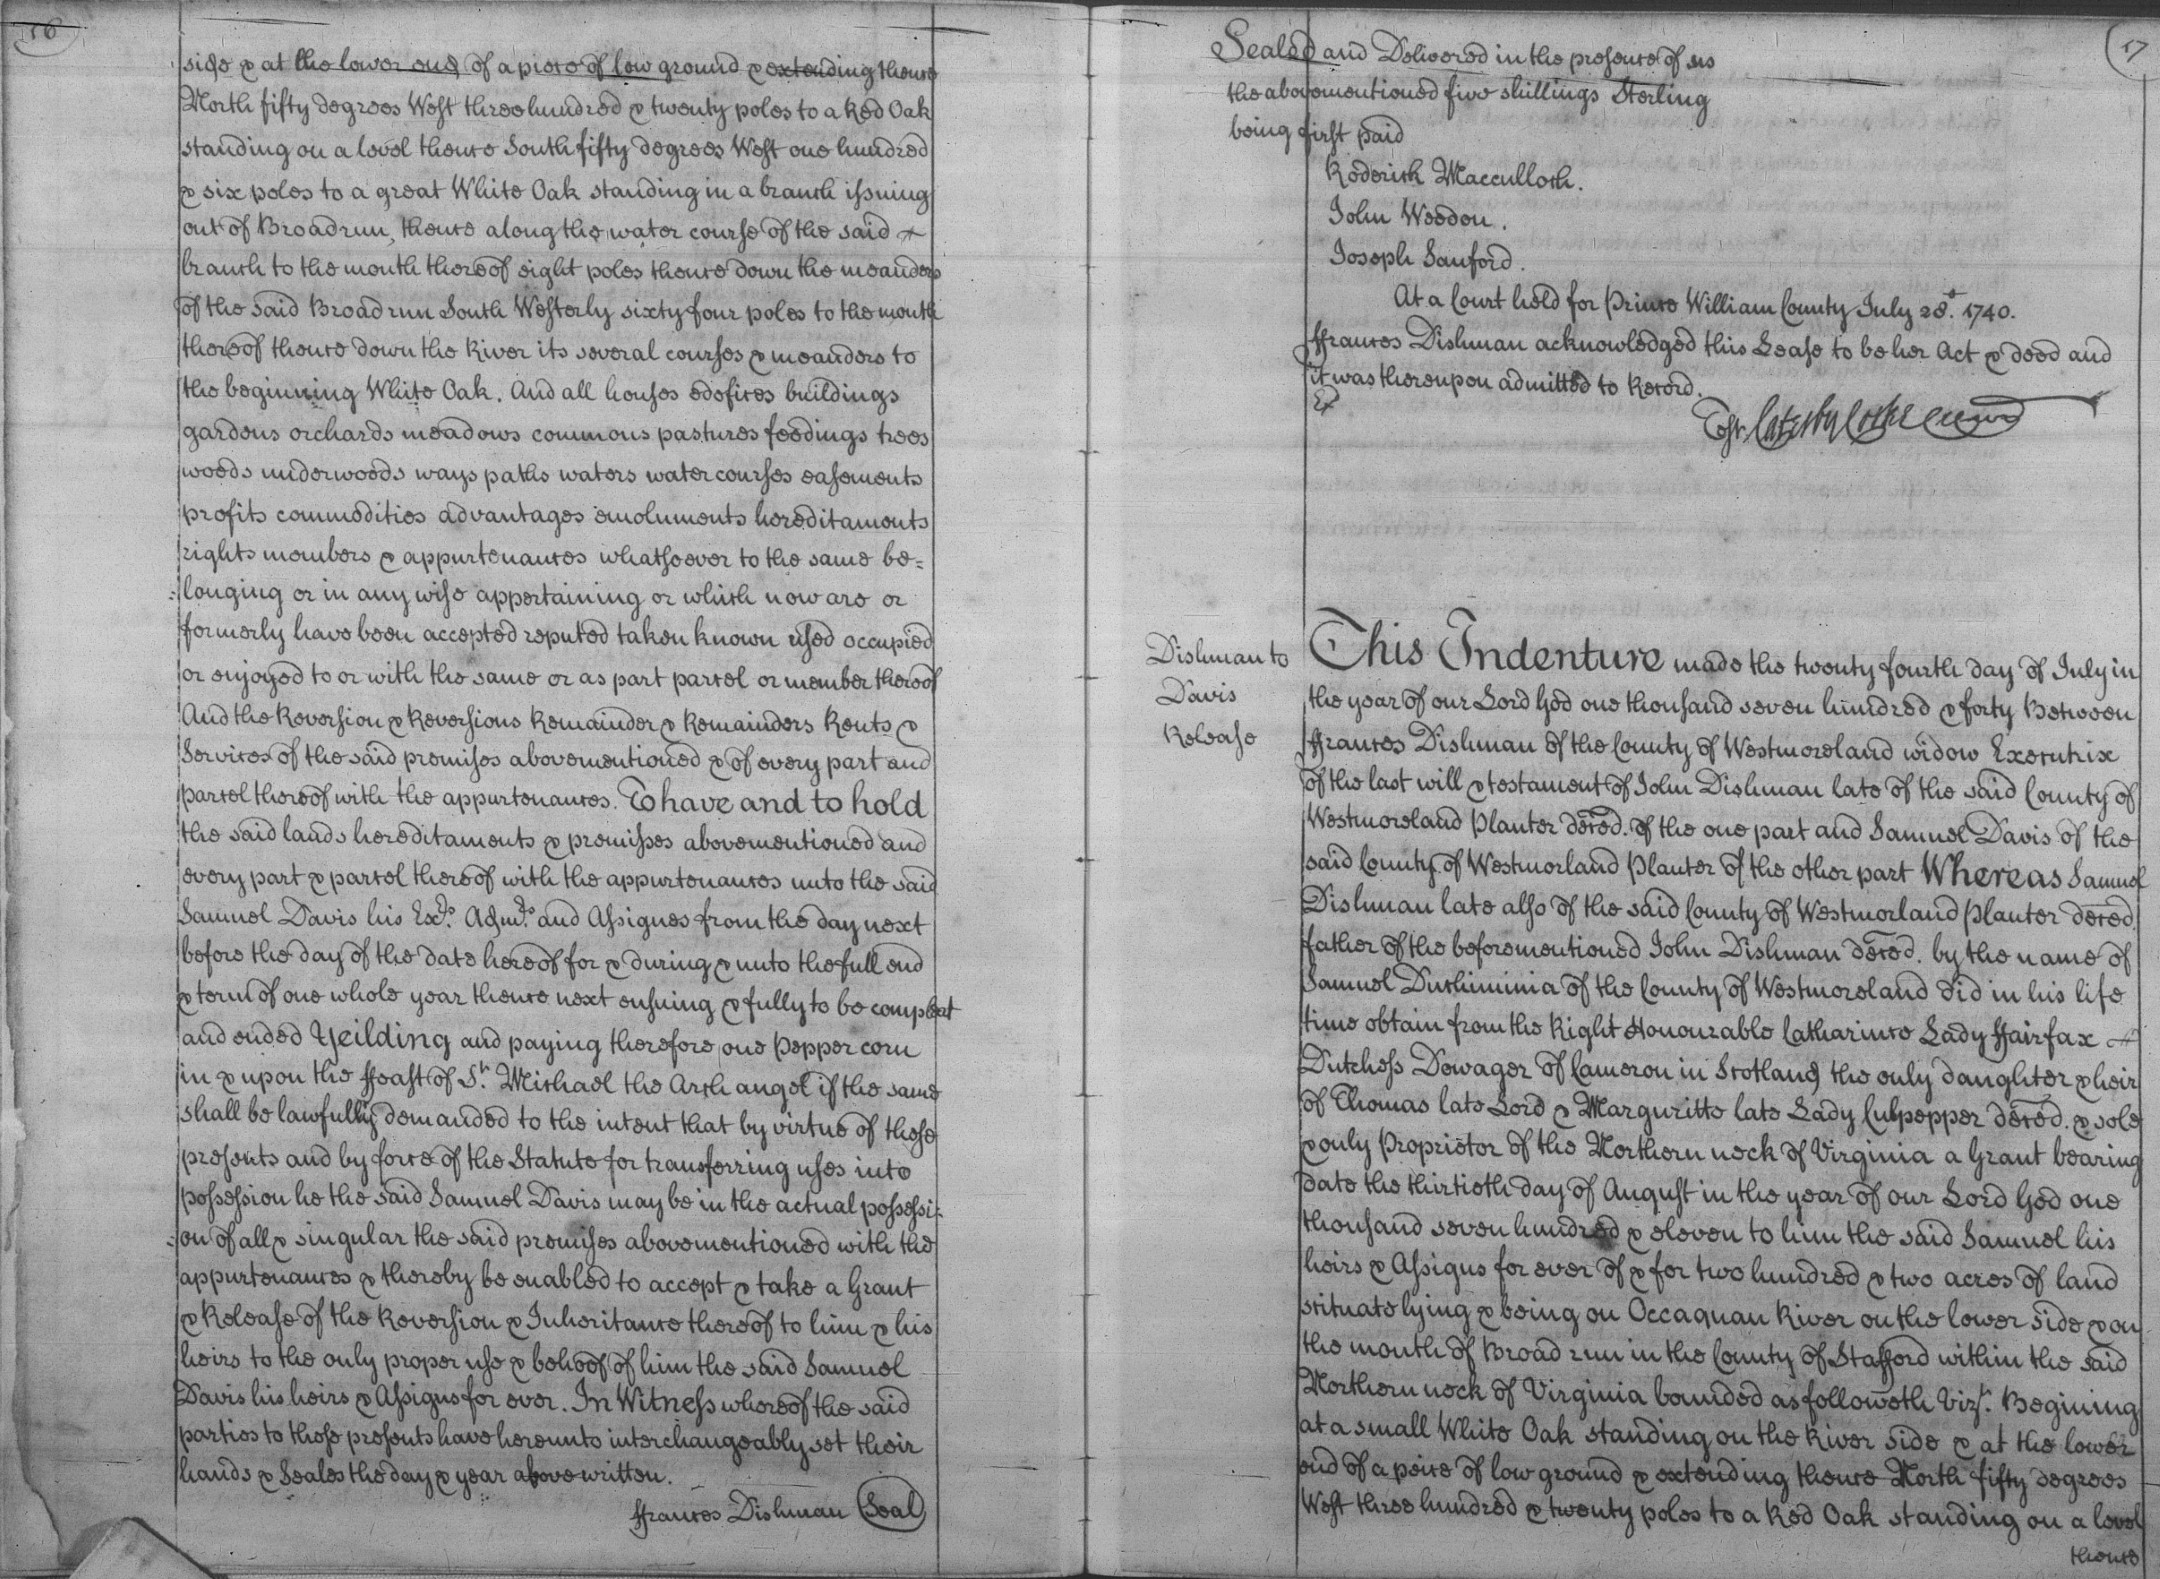 16
side & at the lower end of a piece of low ground & extending thence
North fifty degrees West three hundred & twenty poles to a Red Oak
standing on a level thence South fifty degrees West one hundred
& six poles to a great White Oak standing in a branch issuing
out of Broadrun, thence along the water course of the said
branch to the mouth thereof eight poles thence down the meanders
of the said Broadrun South Westerly sixty four poles to the mouth
thereof thence down the River its several courses & meanders to
the beginning White Oak. And all houses edefices buildings
gardens orchards meadows commons pastures feedings trees
woods underwoods ways paths waters watercourses easements
profits commodities advantages emoluments hereditaments
rights members & appurtenances whatsoever to the same be=
:longing or in any wise appertaining or which now are or
formerly have been accepted reputed taken known used occupied
or enjoyed to or with the same or as part parcel or member thereof
And the Reversion & Reversions Remainder & Remainders Rents &
Services of the said premises abovementioned & of every part and
parcel thereof with the appurtenances. To have and to hold
the said lands hereditaments & premisses abovementioned and
every part & parcel thereof with the appurtenances unto the said
Samuel Davis his Exrs. Admrs. and Assignes from the day next
before the day of the date hereof for & during & unto the full end
& term of one whole year thence next ensuing & fully to be compleat
and ended Yeilding and paying therefore one Pepper corn
in & upon the ffeast of St. Michael the Arch angel if the same
shall be lawfully demanded to the intent that by virtue of these
presents and by force of the Statute for transferring uses into
possession he the said Samuel Davis may be in the actual possessi:
:on of all & singular the said premises abovementioned with the
appurtenances & thereby be enabled to accept & take a Grant
& Release of the Reversion & Inheritance thereof to him & his
heirs to the only proper use & behoof of him the said Samuel
Davis his heirs & Assigns for ever. In Witness whereof the said
parties to these presents have hereunto interchangeably set their
hands & Seales the day & year above written.
ffrances Dishman Seal
17
Sealed and Delivered in the presence of us
the abovementioned five shillings Sterling
being first paid
Roderick Macculloch.
John Weedon.
Joseph Sanford.
At a Court held for Prince William County July 28t. 1740.
ffrances Dishman acknowledged this Lease to be her Act & deed and
it was thereupon admitted to Record.
Test. Catesby Cocke
Dishman to
Davis
Release
This Indenture made the twenty fourth day of July in
the year of our Lord God one thousand seven hundred & forty Between
ffrances Dishman of the County of Westmoreland widow Executrix
of the last will & testament of John Dishman late of the said County of
Westmoreland Planter deced. of the one part and Samuel Davis of the
said County of Westmorland Planter of the other part Whereas Samuel
Dishman late also of the said County of Westmorland Planter deced.
father of the beforementioned John Dishman deced. by the name of
Samuel Duchiminia of the County of Westmoreland did in his life
time obtain from the Right Honourable Catharince Lady ffairfax
Dutchess Dowager of Cameron in Scotland the only daughter & heir
of Thomas late Lord & Marguritte late Lady Culpepper deced. & sole
& only Proprietor of the Northern neck of Virginia a Grant bearing
date the thirtieth day of August in the year of our Lord God one
thousand seven hundred & eleven to him the said Samuel his
heirs & Assigns for ever of & for two hundred & two acres of land
scituate lying & being on Occaquan River on the lower side & on
the mouth of Broad run in the County of Stafford within the said
Northern neck of Virginia bounded as followeth Vizt. Begining
at a small White Oak standing on the River side & at the lower
end of a peice of low ground & extending thence North fifty degrees
West three hundred & twenty poles to a Red Oak standing on a level
thence